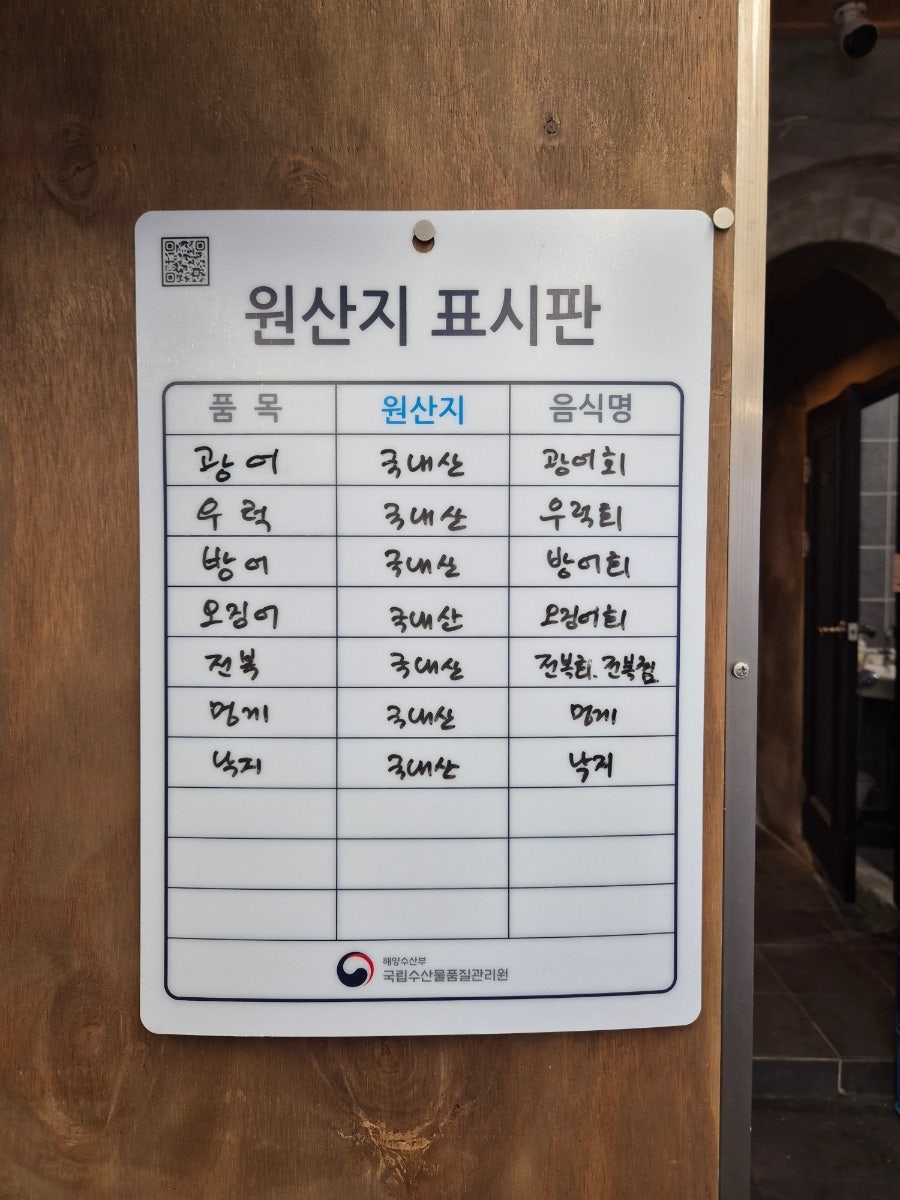 원산지 표시판
품 목 원산지 음식명
광어 국내산 광어회
우럭 국내산 우럭회
방어 국내산 방어회
오징어 국내산 오징어회
전복 국내산 전복회. 전복찜
멍게 국내산 멍게
낙지 국내산 낙지
해양수산부
국립수산물품질관리원